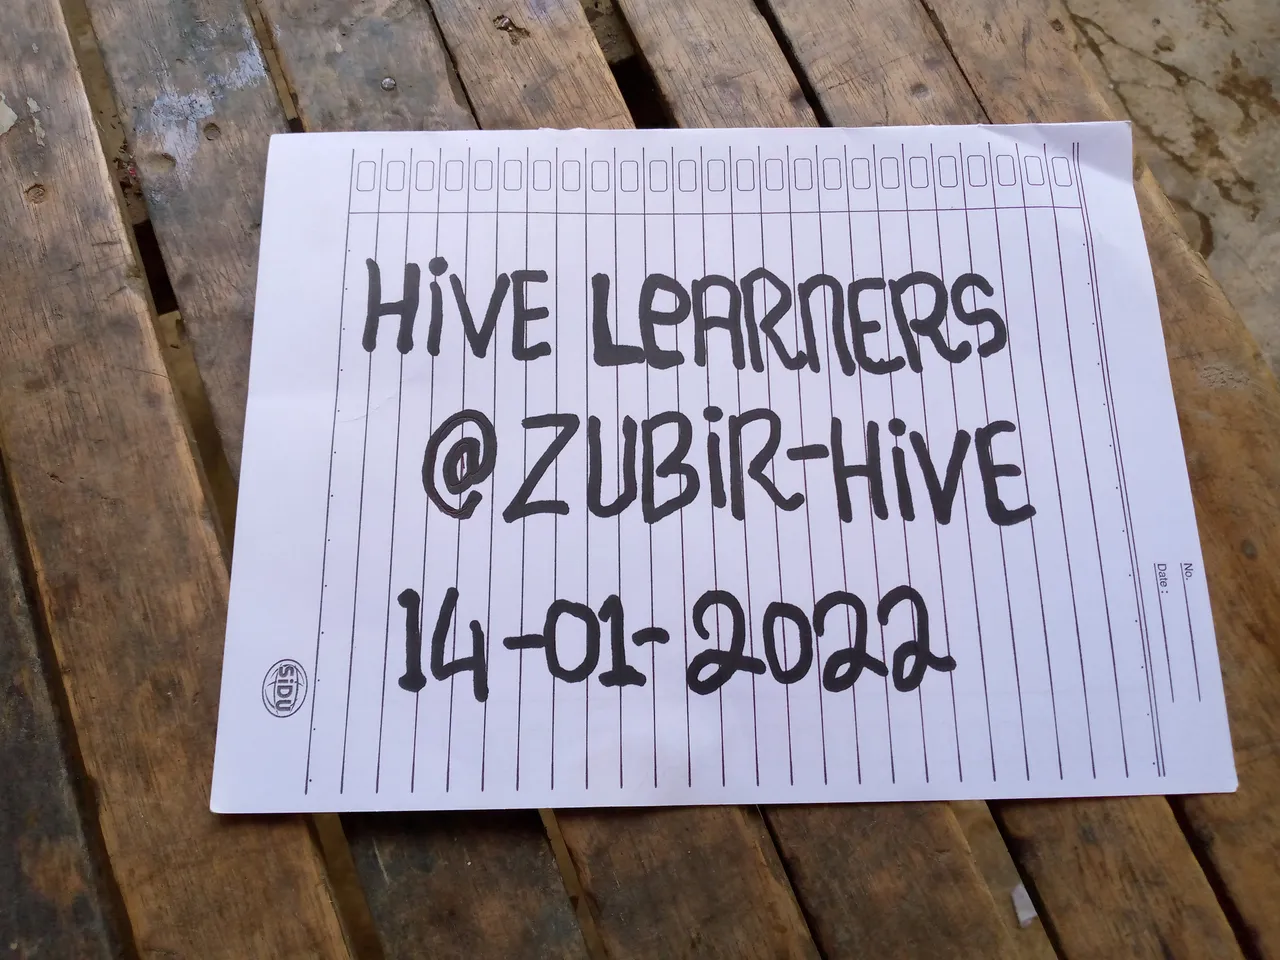 HiVE LeARNERS
@ZUBiR-HiVE
14-01-2022
No.
Date:
SiDU